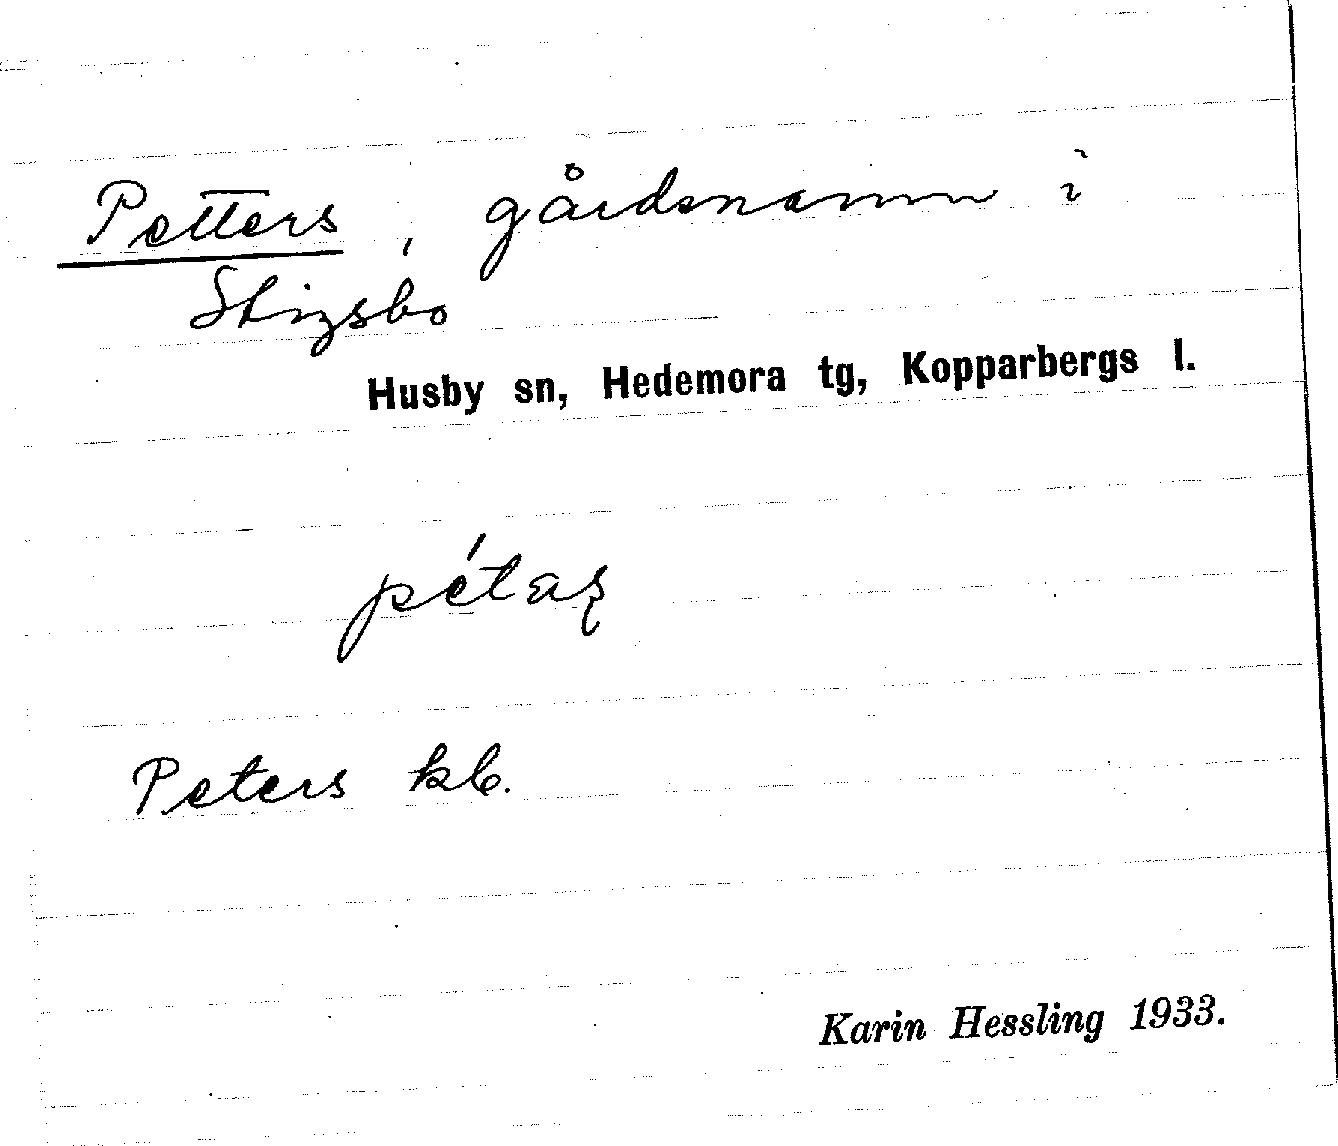 Petters, gårdsnamn i
Stigsbo
Husby sn, Hedemora tg, Kopparbergs l.
Peters kb.
Karin Hessling 1933.